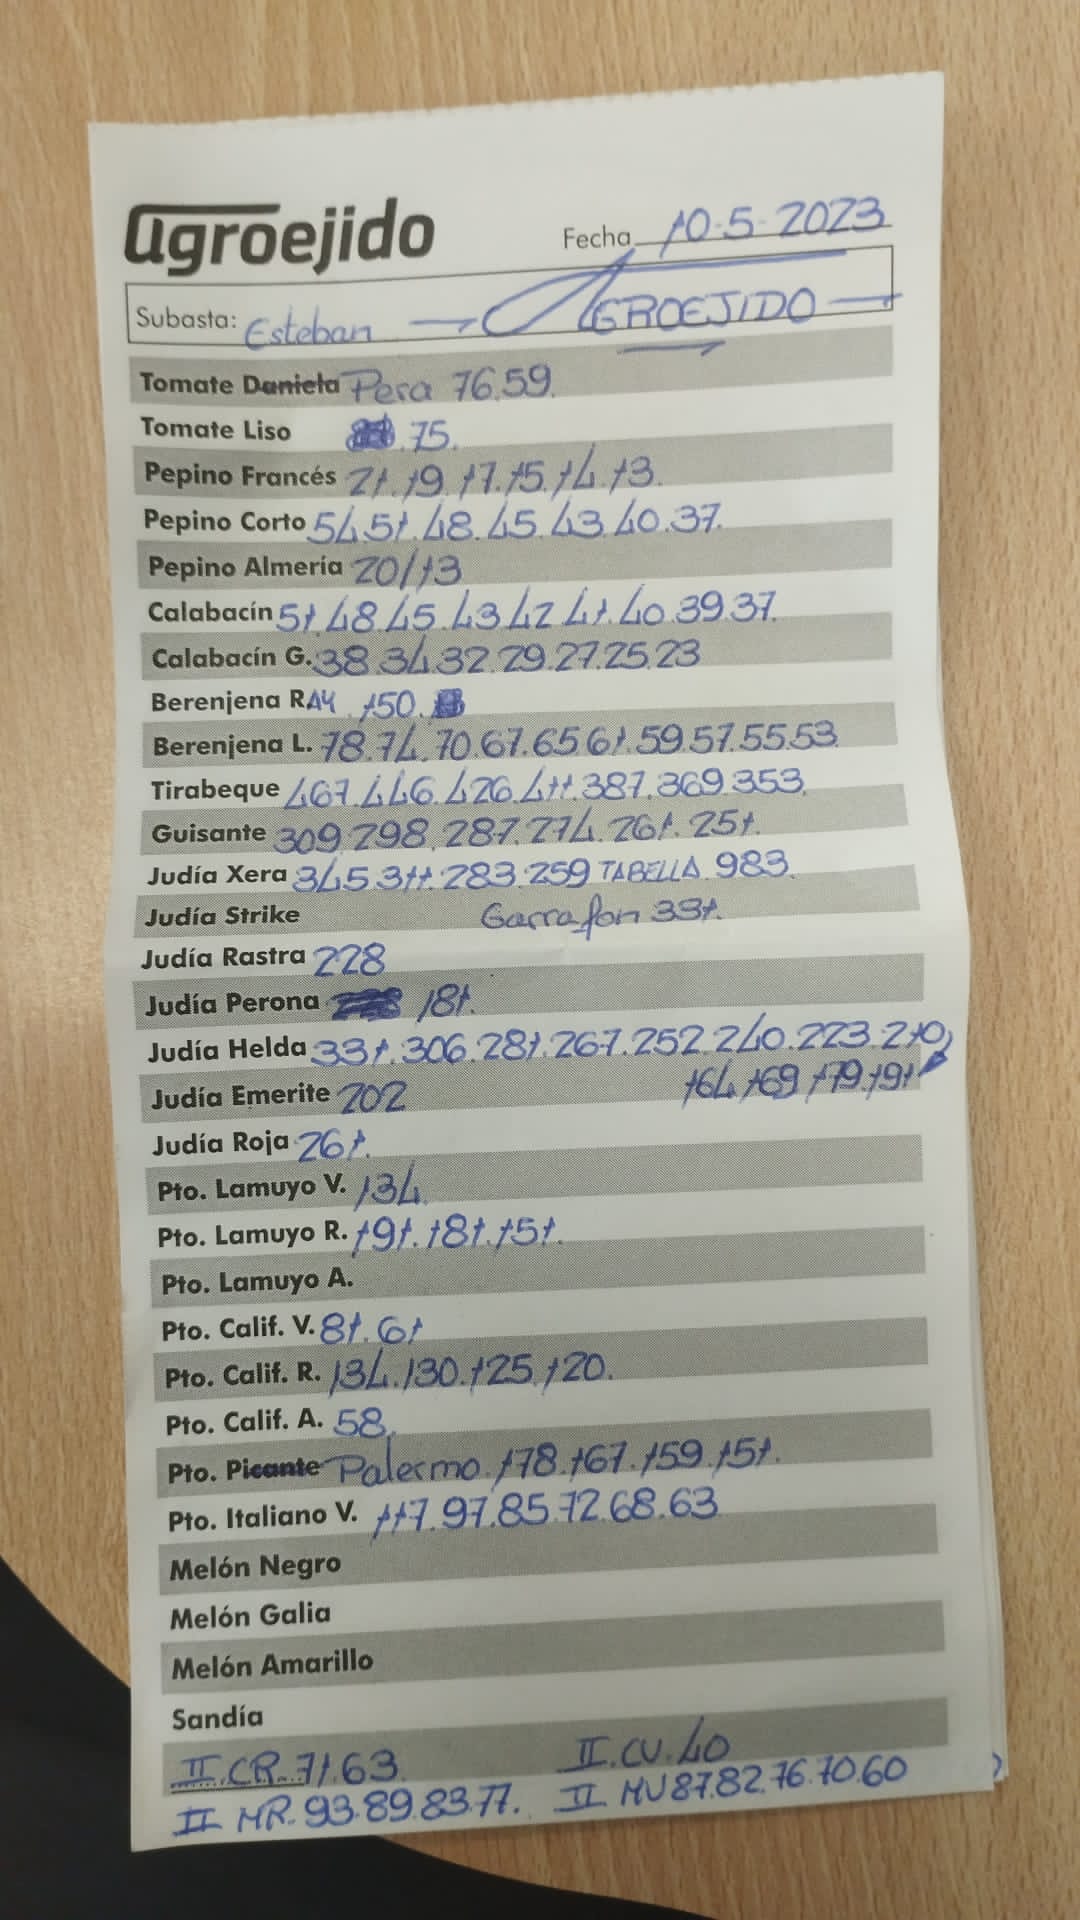 agroejido
Fecha 10-5-2023
Subasta: Esteban → AGROEJIDO
Tomate Daniela Pera 76.59.
Tomate Liso 75.
Pepino Francés 21.19.17.15.14.13.
Pepino Corto 54.51.48.45.43.40.37.
Pepino Almería 20/13
Calabacín 51.48.45.43.42.41.40.39.37.
Calabacín G. 38.34.32.29.27.25.23
Berenjena RAY 150.
Berenjena L. 78.74.70.67.65.61.59.57.55.53
Tirabeque 467.446.426.411.387.369.353.
Guisante 309.298.287.274.261.251.
Judía Xera 345.311.283.259 TABELLA 983.
Judía Strike Garrafon 331.
Judía Rastra 228
Judía Perona 181.
Judía Helda 331.306.281.267.252.240.223.210
Judía Emerite 202 164.169.179.191
Judía Roja 261.
Pto. Lamuyo V. 134.
Pto. Lamuyo R. 191.181.151.
Pto. Lamuyo A.
Pto. Calif. V. 81.61
Pto. Calif. R. 134.130.125.120.
Pto. Calif. A. 58.
Pto. Picante Palermo 178.167.159.151.
Pto. Italiano V. 117.97.85.72.68.63
Melón Negro
Melón Galia
Melón Amarillo
Sandía
II.CR.71.63. II.CV.40
II MR.93.89.83.77. II MV 87.82.76.70.60